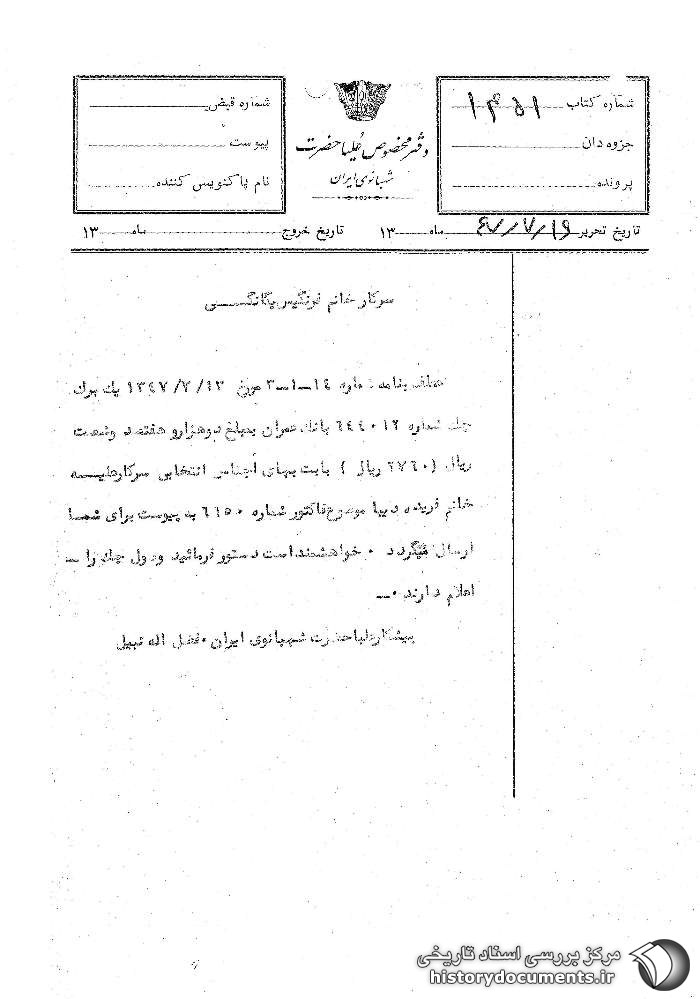 شماره کتاب ۱۴۵۱
جزوه دان
پرونده
دفتر مخصوص علیاحضرت
شهبانوی ایران
شماره قبض
پیوست
نام پاکنویس کننده
تاریخ تحریر ۴۷/۷/۱۶ ماه ۱۳ تاریخ خروج ماه ۱۳
سرکار خانم فرنگیس یگانگی
عطف بنامه شماره ۱۴-۱-۳ مورخ ۱۳۴۷/۷/۱۳ یک برگ
چک شماره ۶۴۴۰۱۲ بانک عمران بمبلغ دوهزارو هفتصد و شصت
ریال (۲۷۶۰ ریال ) بابت بهای اجناس انتخابی سرکارعلیه
خانم فریده دیبا موضوع فاکتور شماره ۶۱۵۰ به پیوست برای شما
ارسال میگردد ۰ خواهشمند است دستور فرمائید وصول چک را -
اعلام دارند ۰-
پیشکار علیاحضرت شهبانوی ایران ۰ فضل اله نبیل
مرکز بررسی اسناد تاریخی
historydocuments.ir